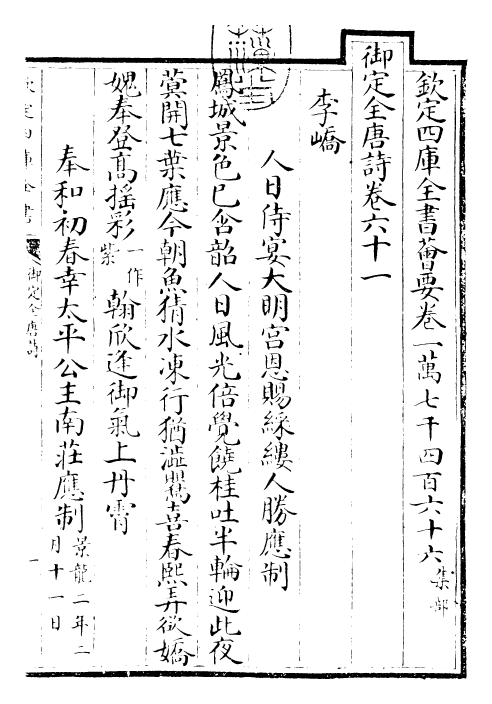 欽定四庫全書薈要卷一萬七千四百六十六 集部
御定全唐詩卷六十一
李嶠
人日侍宴大明宮恩賜綵縷人勝應制
鳳城景色已含韶人日風光倍覺饒桂吐半輪迎此夜
蓂開七葉應今朝魚猜水凍行猶澁鸎喜春熙弄欲嬌
媿奉登髙搖彩一作紫翰欣逢御氣上丹霄
奉和初春幸太平公主南莊應制景龍二年二月十一日
欽定四庫全書 御定全唐詩 一